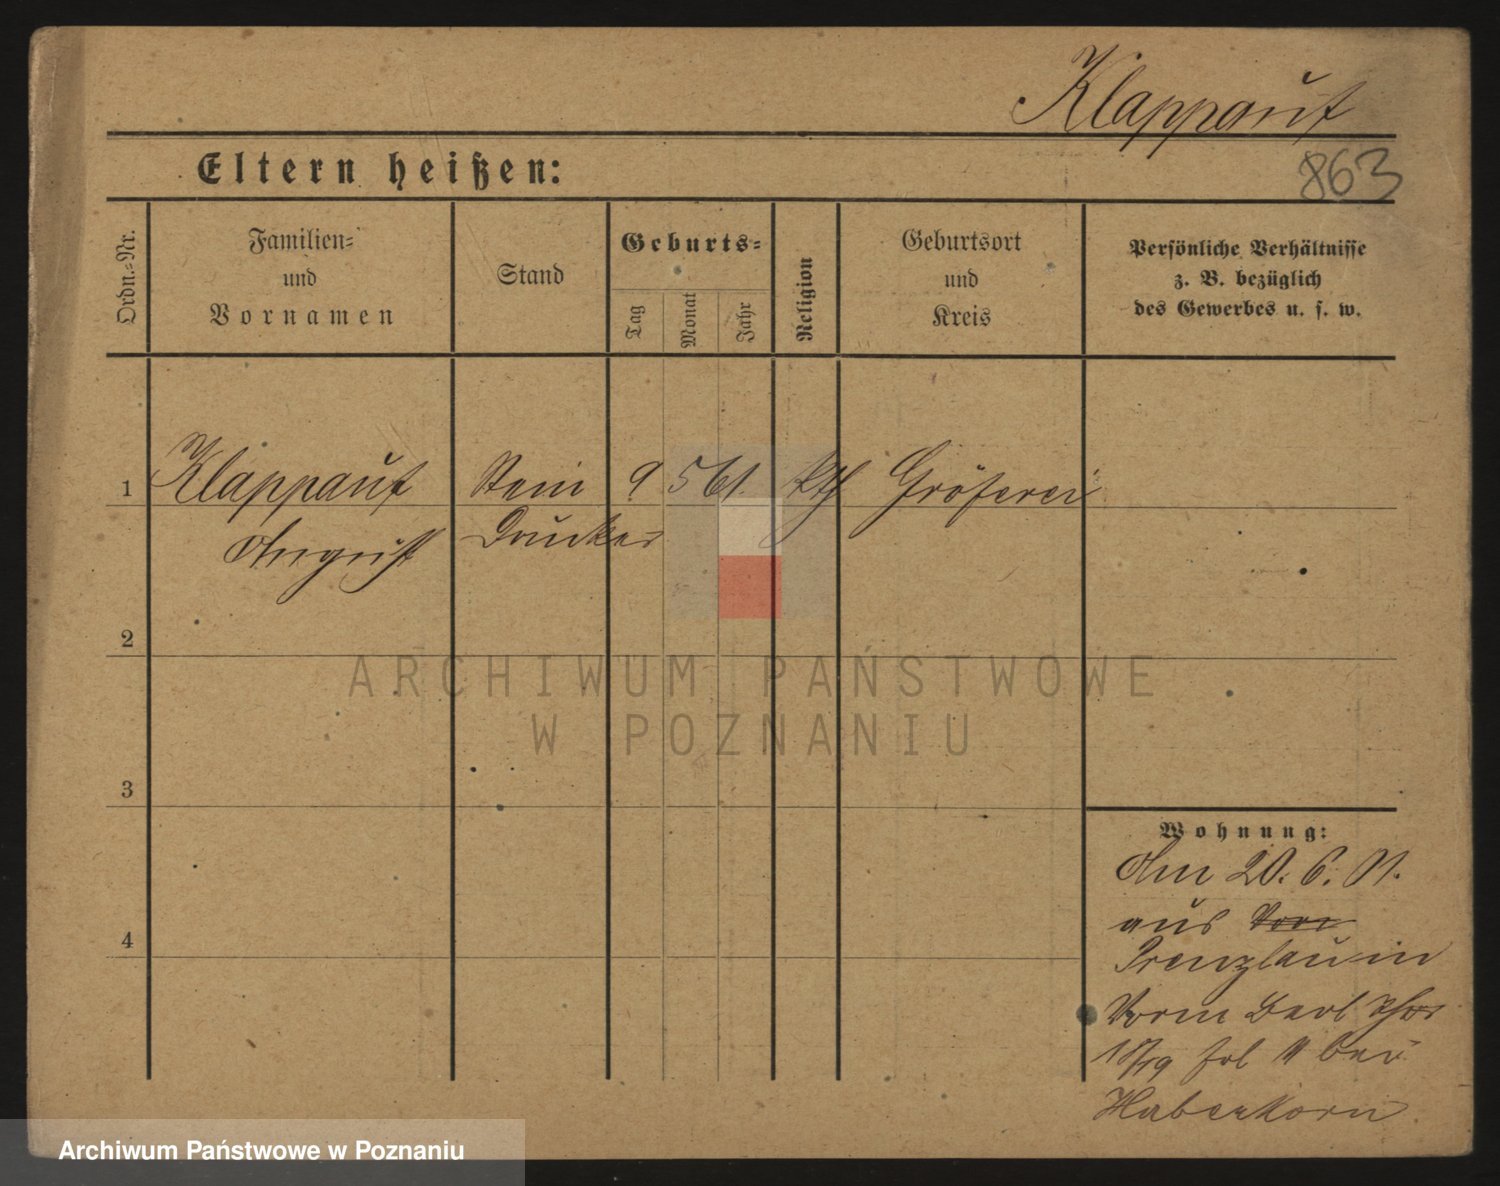 Klappauf
Eltern heißen:
863
Ordn.-Nr.
Familien-
und
Vornamen
Stand
Geburts-
Tag
Monat
Jahr
Religion
Geburtsort
und
Kreis
Persönliche Verhältnisse
z. B. bezüglich
des Gewerbes u. s. w.
1
Klappauf Stein 9 5 61. kth Gröferei
August Drucker
2
3
4
Wohnung:
Am 20. 6. 01.
aus Vorn
Prenzlau in
Vorm Berl Thor
18/19 bei
Haberkorn
ARCHIWUM PAŃSTWOWE
W POZNANIU
Archiwum Państwowe w Poznaniu